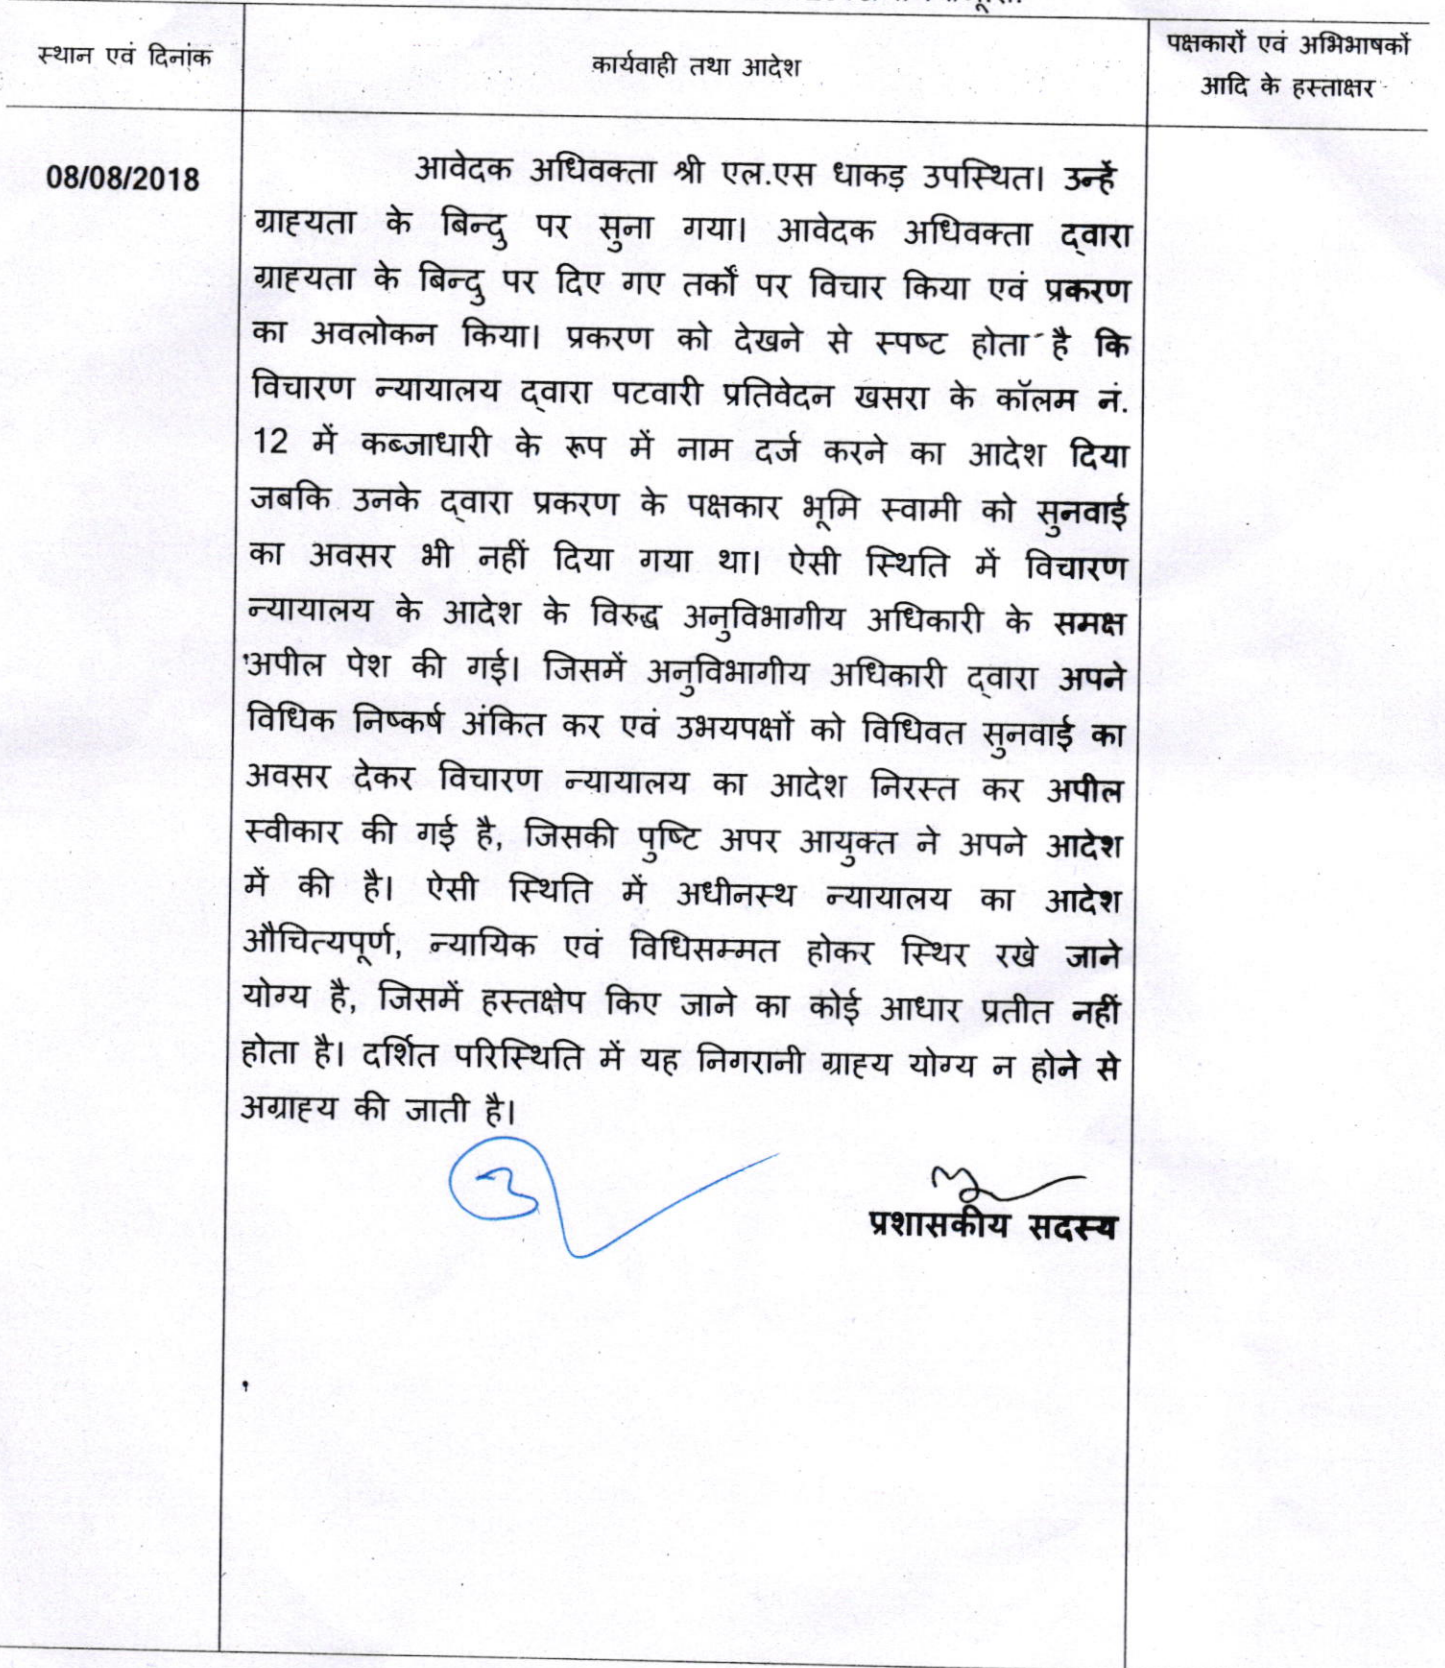 स्थान एवं दिनांक
कार्यवाही तथा आदेश
पक्षकारों एवं अभिभाषकों
आदि के हस्ताक्षर
08/08/2018
आवेदक अधिवक्ता श्री एल.एस धाकड़ उपस्थित। उन्हें
ग्राह्यता के बिन्दु पर सुना गया। आवेदक अधिवक्ता द्वारा
ग्राह्यता के बिन्दु पर दिए गए तर्कों पर विचार किया एवं प्रकरण
का अवलोकन किया। प्रकरण को देखने से स्पष्ट होता है कि
विचारण न्यायालय द्वारा पटवारी प्रतिवेदन खसरा के कॉलम नं.
12 में कब्जाधारी के रूप में नाम दर्ज करने का आदेश दिया
जबकि उनके द्वारा प्रकरण के पक्षकार भूमि स्वामी को सुनवाई
का अवसर भी नहीं दिया गया था। ऐसी स्थिति में विचारण
न्यायालय के आदेश के विरुद्ध अनुविभागीय अधिकारी के समक्ष
अपील पेश की गई। जिसमें अनुविभागीय अधिकारी द्वारा अपने
विधिक निष्कर्ष अंकित कर एवं उभयपक्षों को विधिवत सुनवाई का
अवसर देकर विचारण न्यायालय का आदेश निरस्त कर अपील
स्वीकार की गई है, जिसकी पुष्टि अपर आयुक्त ने अपने आदेश
में की है। ऐसी स्थिति में अधीनस्थ न्यायालय का आदेश
औचित्यपूर्ण, न्यायिक एवं विधिसम्मत होकर स्थिर रखे जाने
योग्य है, जिसमें हस्तक्षेप किए जाने का कोई आधार प्रतीत नहीं
होता है। दर्शित परिस्थिति में यह निगरानी ग्राह्य योग्य न होने से
अग्राह्य की जाती है।
प्रशासकीय सदस्य